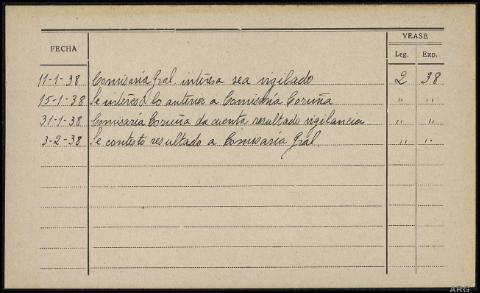 VEASE
FECHA
Leg. Exp.
11-1-38 Comisaria Gral. interesa sea vigilado 2 38
15-1-38 Se interesó lo anterior a Comisaria Coruña " "
31-1-38 Comisaria Coruña da cuenta resultado vigilancia " "
3-2-38 Se contestó resultado a Comisaria Gral " "
ARG